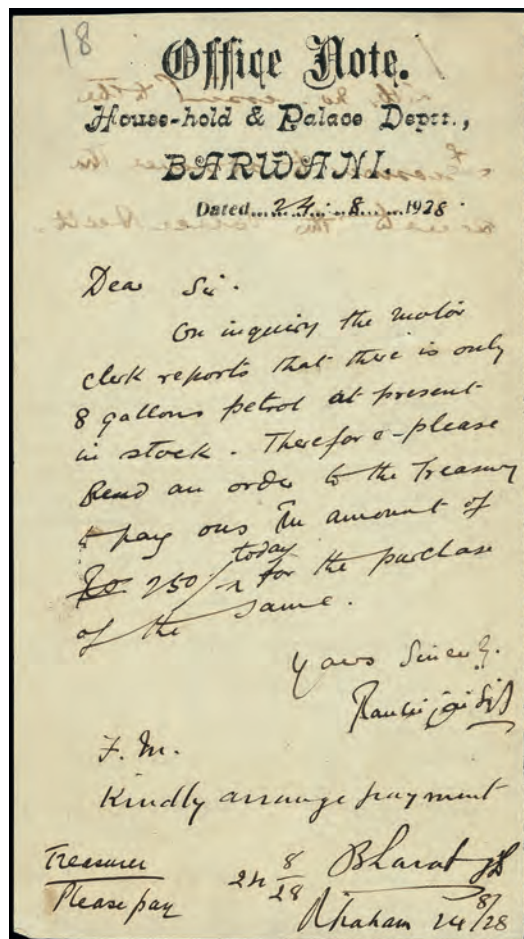 18
Office Note.
House-hold & Palace Deptt.,
BARWANI.
Dated....24....8......1928
Dear Sir.
On inquiry the motor
clerk reports that there is only
8 gallons petrol at present
in stock. Therefore please
send an order to the Treasury
to pay ous the amount of
Rs 250/- today for the purchase
of the same.
Yours Sincerely.
F. M.
Kindly arrange payment
Treasurer
Please pay
24 8/28
Bharat
24 8/28